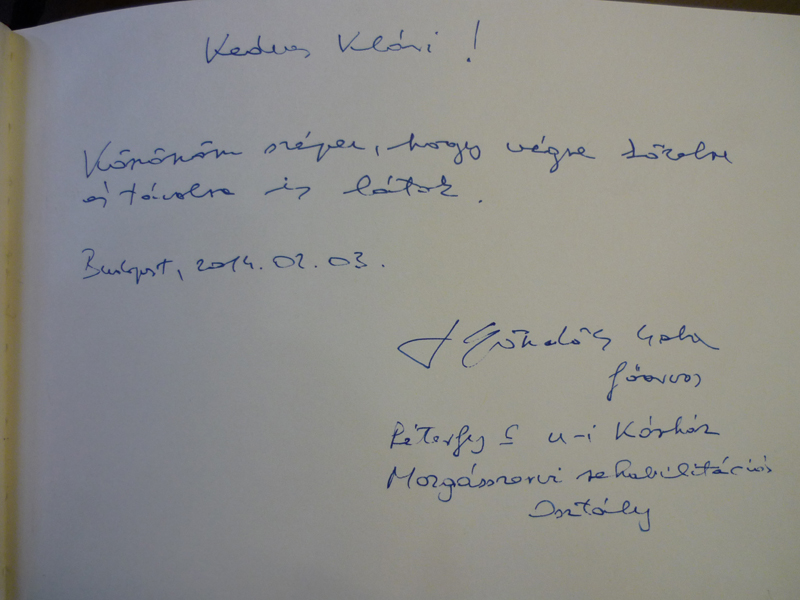 Kedves Klári !
Köszönöm szépen, hogy végre közelre
és távolra is látok.
Budapest, 2014. 02. 03.
főorvos
Péterfy S u-i Kórház
Mozgásszervi rehabilitációs
Osztály